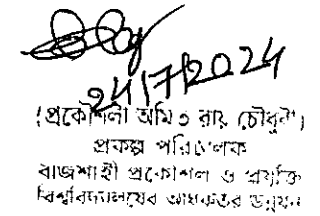 24/7/2024
(প্রকৌশলী অমিত রায় চৌধুরী)
প্রকল্প পরিচালক
রাজশাহী প্রকৌশল ও প্রযুক্তি
বিশ্ববিদ্যালয়ের অধিকতর উন্নয়ন